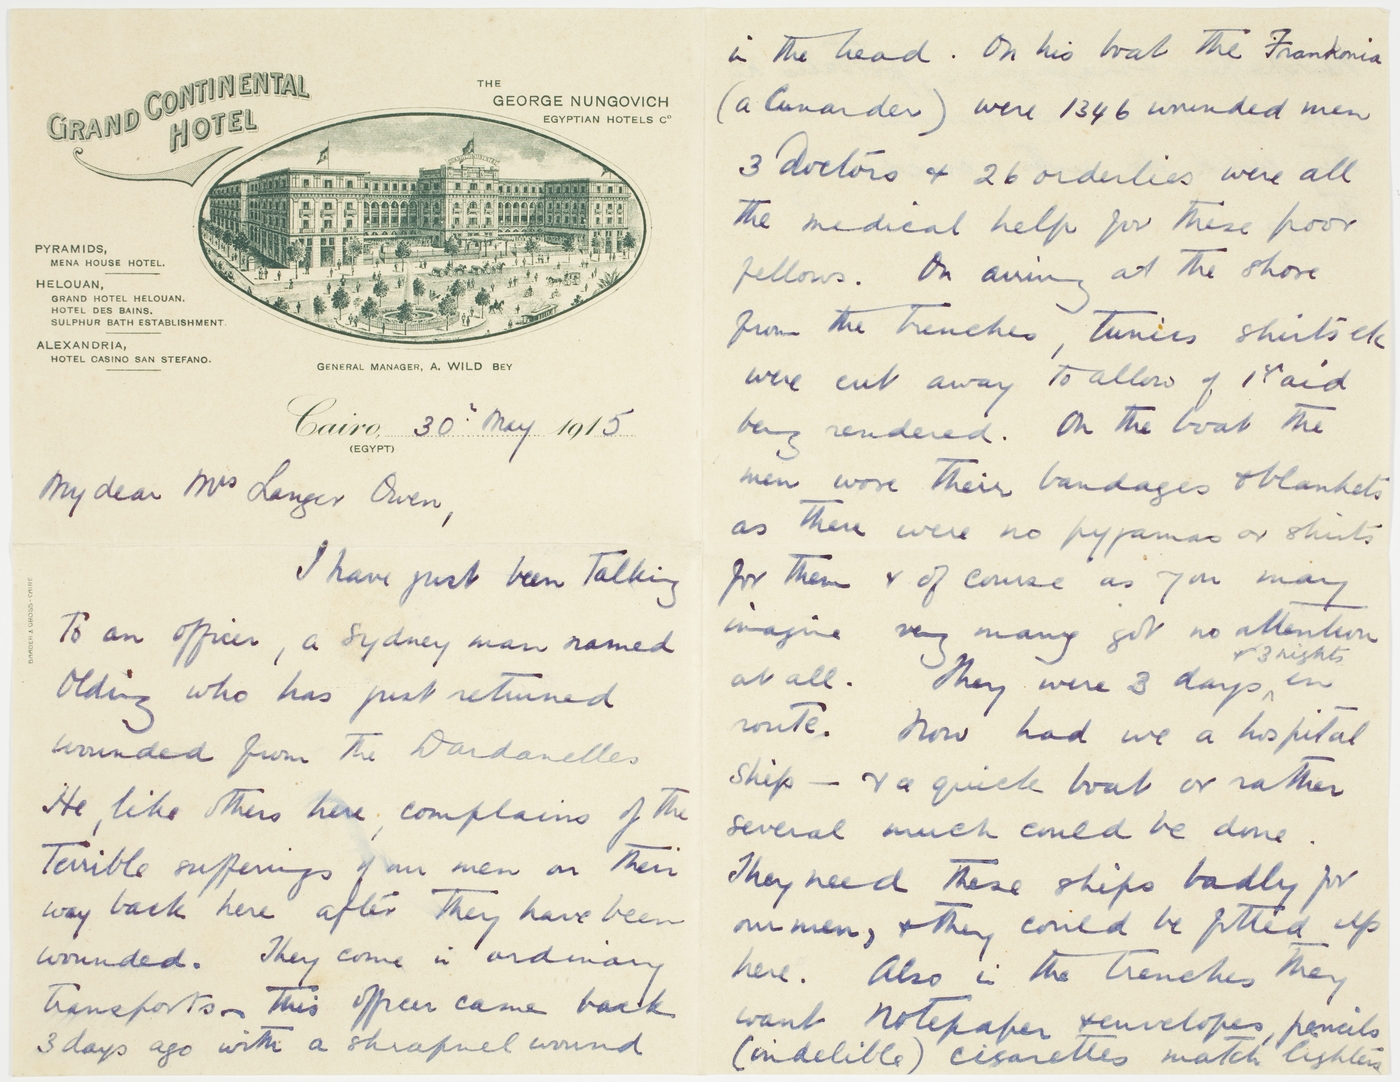 GRAND CONTINENTAL
HOTEL
THE
GEORGE NUNGOVICH
EGYPTIAN HOTELS Cº
PYRAMIDS,
MENA HOUSE HOTEL.
HELOUAN,
GRAND HOTEL HELOUAN.
HOTEL DES BAINS.
SULPHUR BATH ESTABLISHMENT.
ALEXANDRIA,
HOTEL CASINO SAN STEFANO.
GENERAL MANAGER, A. WILD BEY
Cairo, 30th May 1915
(EGYPT)
My dear Mrs Langer Owen,
I have just been talking
to an officer, a Sydney man named
Olding who has just returned
wounded from the Dardanelles
He, like others here, complains of the
terrible sufferings of our men on their
way back here after they have been
wounded. They come in ordinary
transports – this officer came back
3 days ago with a shrapnel wound
BARDER & GRIGGS-CAIRO
in the head. On his boat the Frankonia
(a Cunarder) were 1346 wounded men
3 Doctors & 26 orderlies were all
the medical help for these poor
fellows. On arriving at the shore
from the trenches, tunics shirts etc
were cut away to allow of 1st aid
being rendered. On the boat the
men wore their bandages & blankets
as there were no pyjamas or shirts
for them & of course as you may
imagine very many got no attention
at all. They were 3 days & 3 nights en
route. Now had we a hospital
ship — & a quick boat or rather
several much could be done.
They need these ships badly for
our men, & they could be fitted up
here. Also in the trenches they
want notepaper & envelopes, pencils
(indelible) cigarettes match lighters